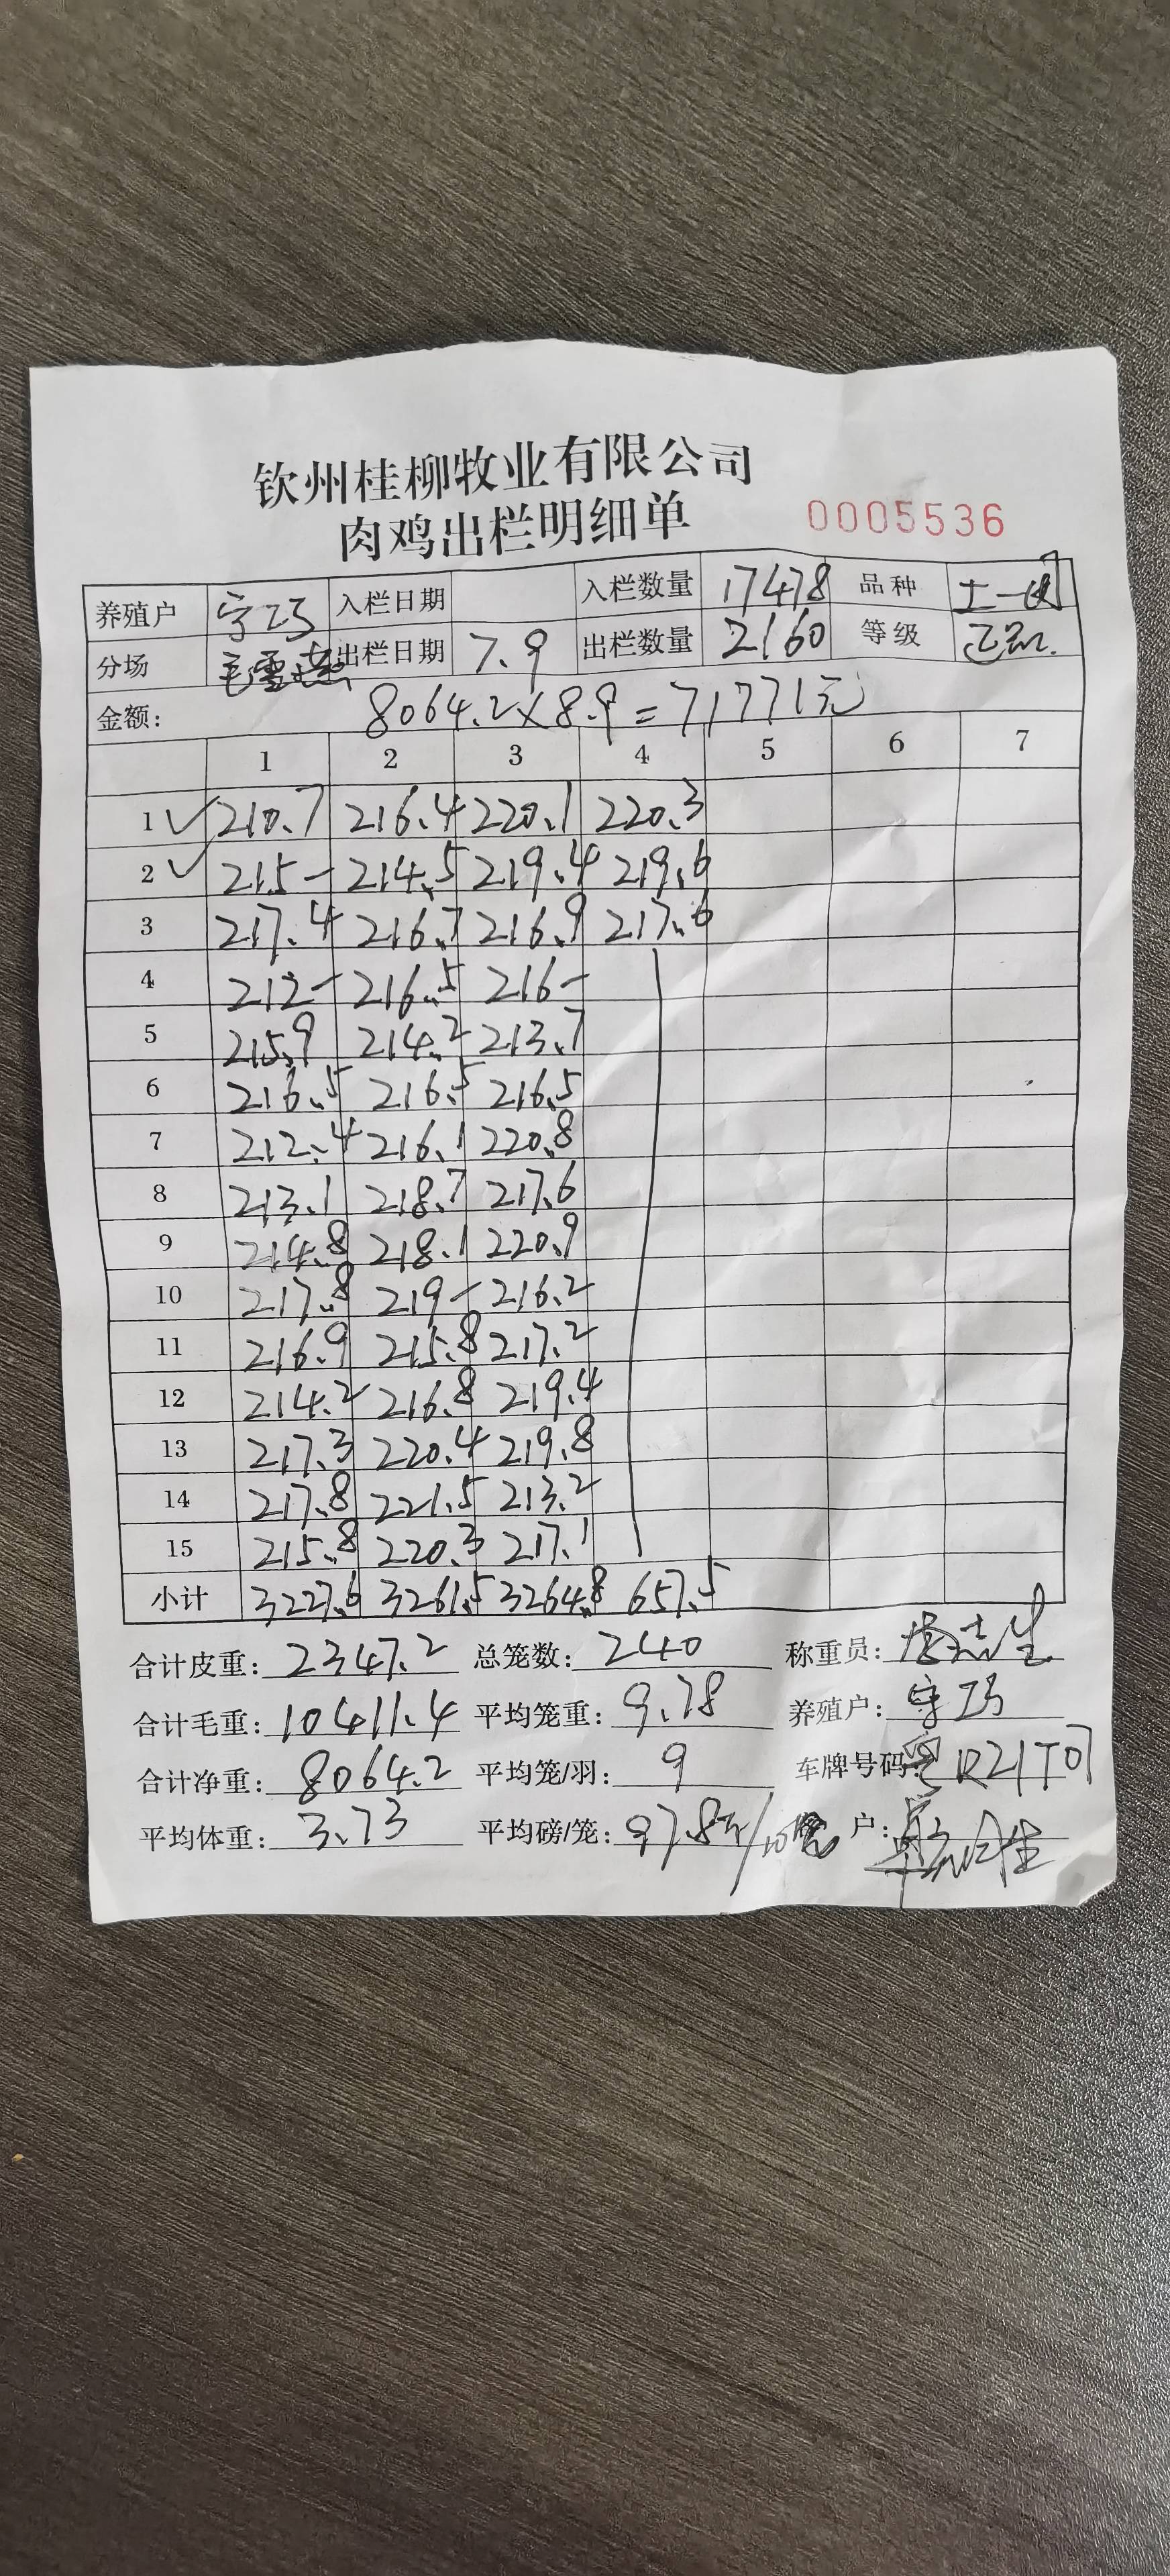 钦州桂柳牧业有限公司
肉鸡出栏明细单 0005536
养殖户 宁巧 入栏日期 入栏数量 17478 品种 土一
分场 毛雪燕 出栏日期 7.9 出栏数量 2160 等级
金额: 8064.2×8.9=71771元
1 2 3 4 5 6 7
1 ✓ 210.7 216.4 220.1 220.3
2 ✓ 215- 214.5 219.4 219.6
3 217.4 216.7 216.9 217.6
4 212- 216.5 216-
5 215.9 214.2 213.7
6 216.5 216.5 216.5
7 212.4 216.1 220.8
8 213.1 218.7 217.6
9 214.8 218.1 220.9
10 217.8 219- 216.2
11 216.9 215.8 217.2
12 214.2 216.8 219.4
13 217.3 220.4 219.8
14 217.8 221.5 213.2
15 215.8 220.3 217.1
小计 3227.6 3261.5 3264.8 657.5
合计皮重: 2347.2 总笼数: 240 称重员: 志生
合计毛重: 10411.4 平均笼重: 9.78 养殖户: 宁巧
合计净重: 8064.2 平均笼/羽: 9 车牌号码: R21T07
平均体重: 3.73 平均磅/笼: 97.8斤/10笼 户: